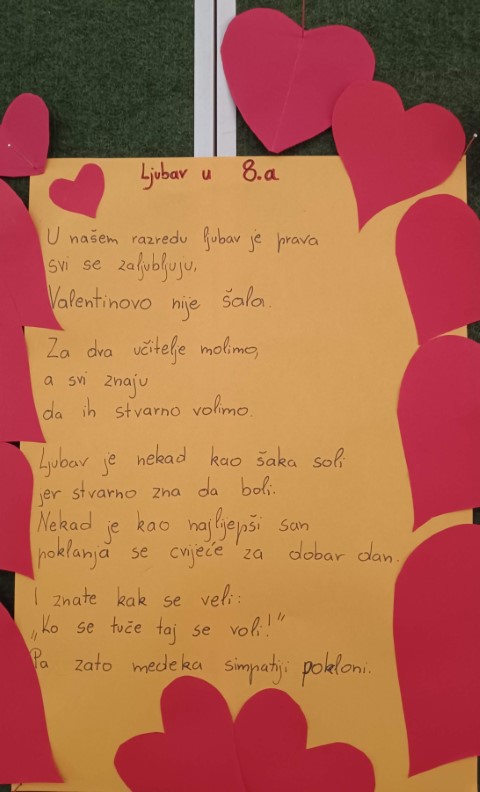 Ljubav u 8.a
U našem razredu ljubav je prava
svi se zaljubljuju,
Valentinovo nije šala.
Za dva učitelje molimo,
a svi znaju
da ih stvarno volimo.
Ljubav je nekad kao šaka soli
jer stvarno zna da boli.
Nekad je kao najljepši san
poklanja se cvijeće za dobar dan.
I znate kak se veli:
„Ko se tuče taj se voli!"
Pa zato medeka simpatiji pokloni.